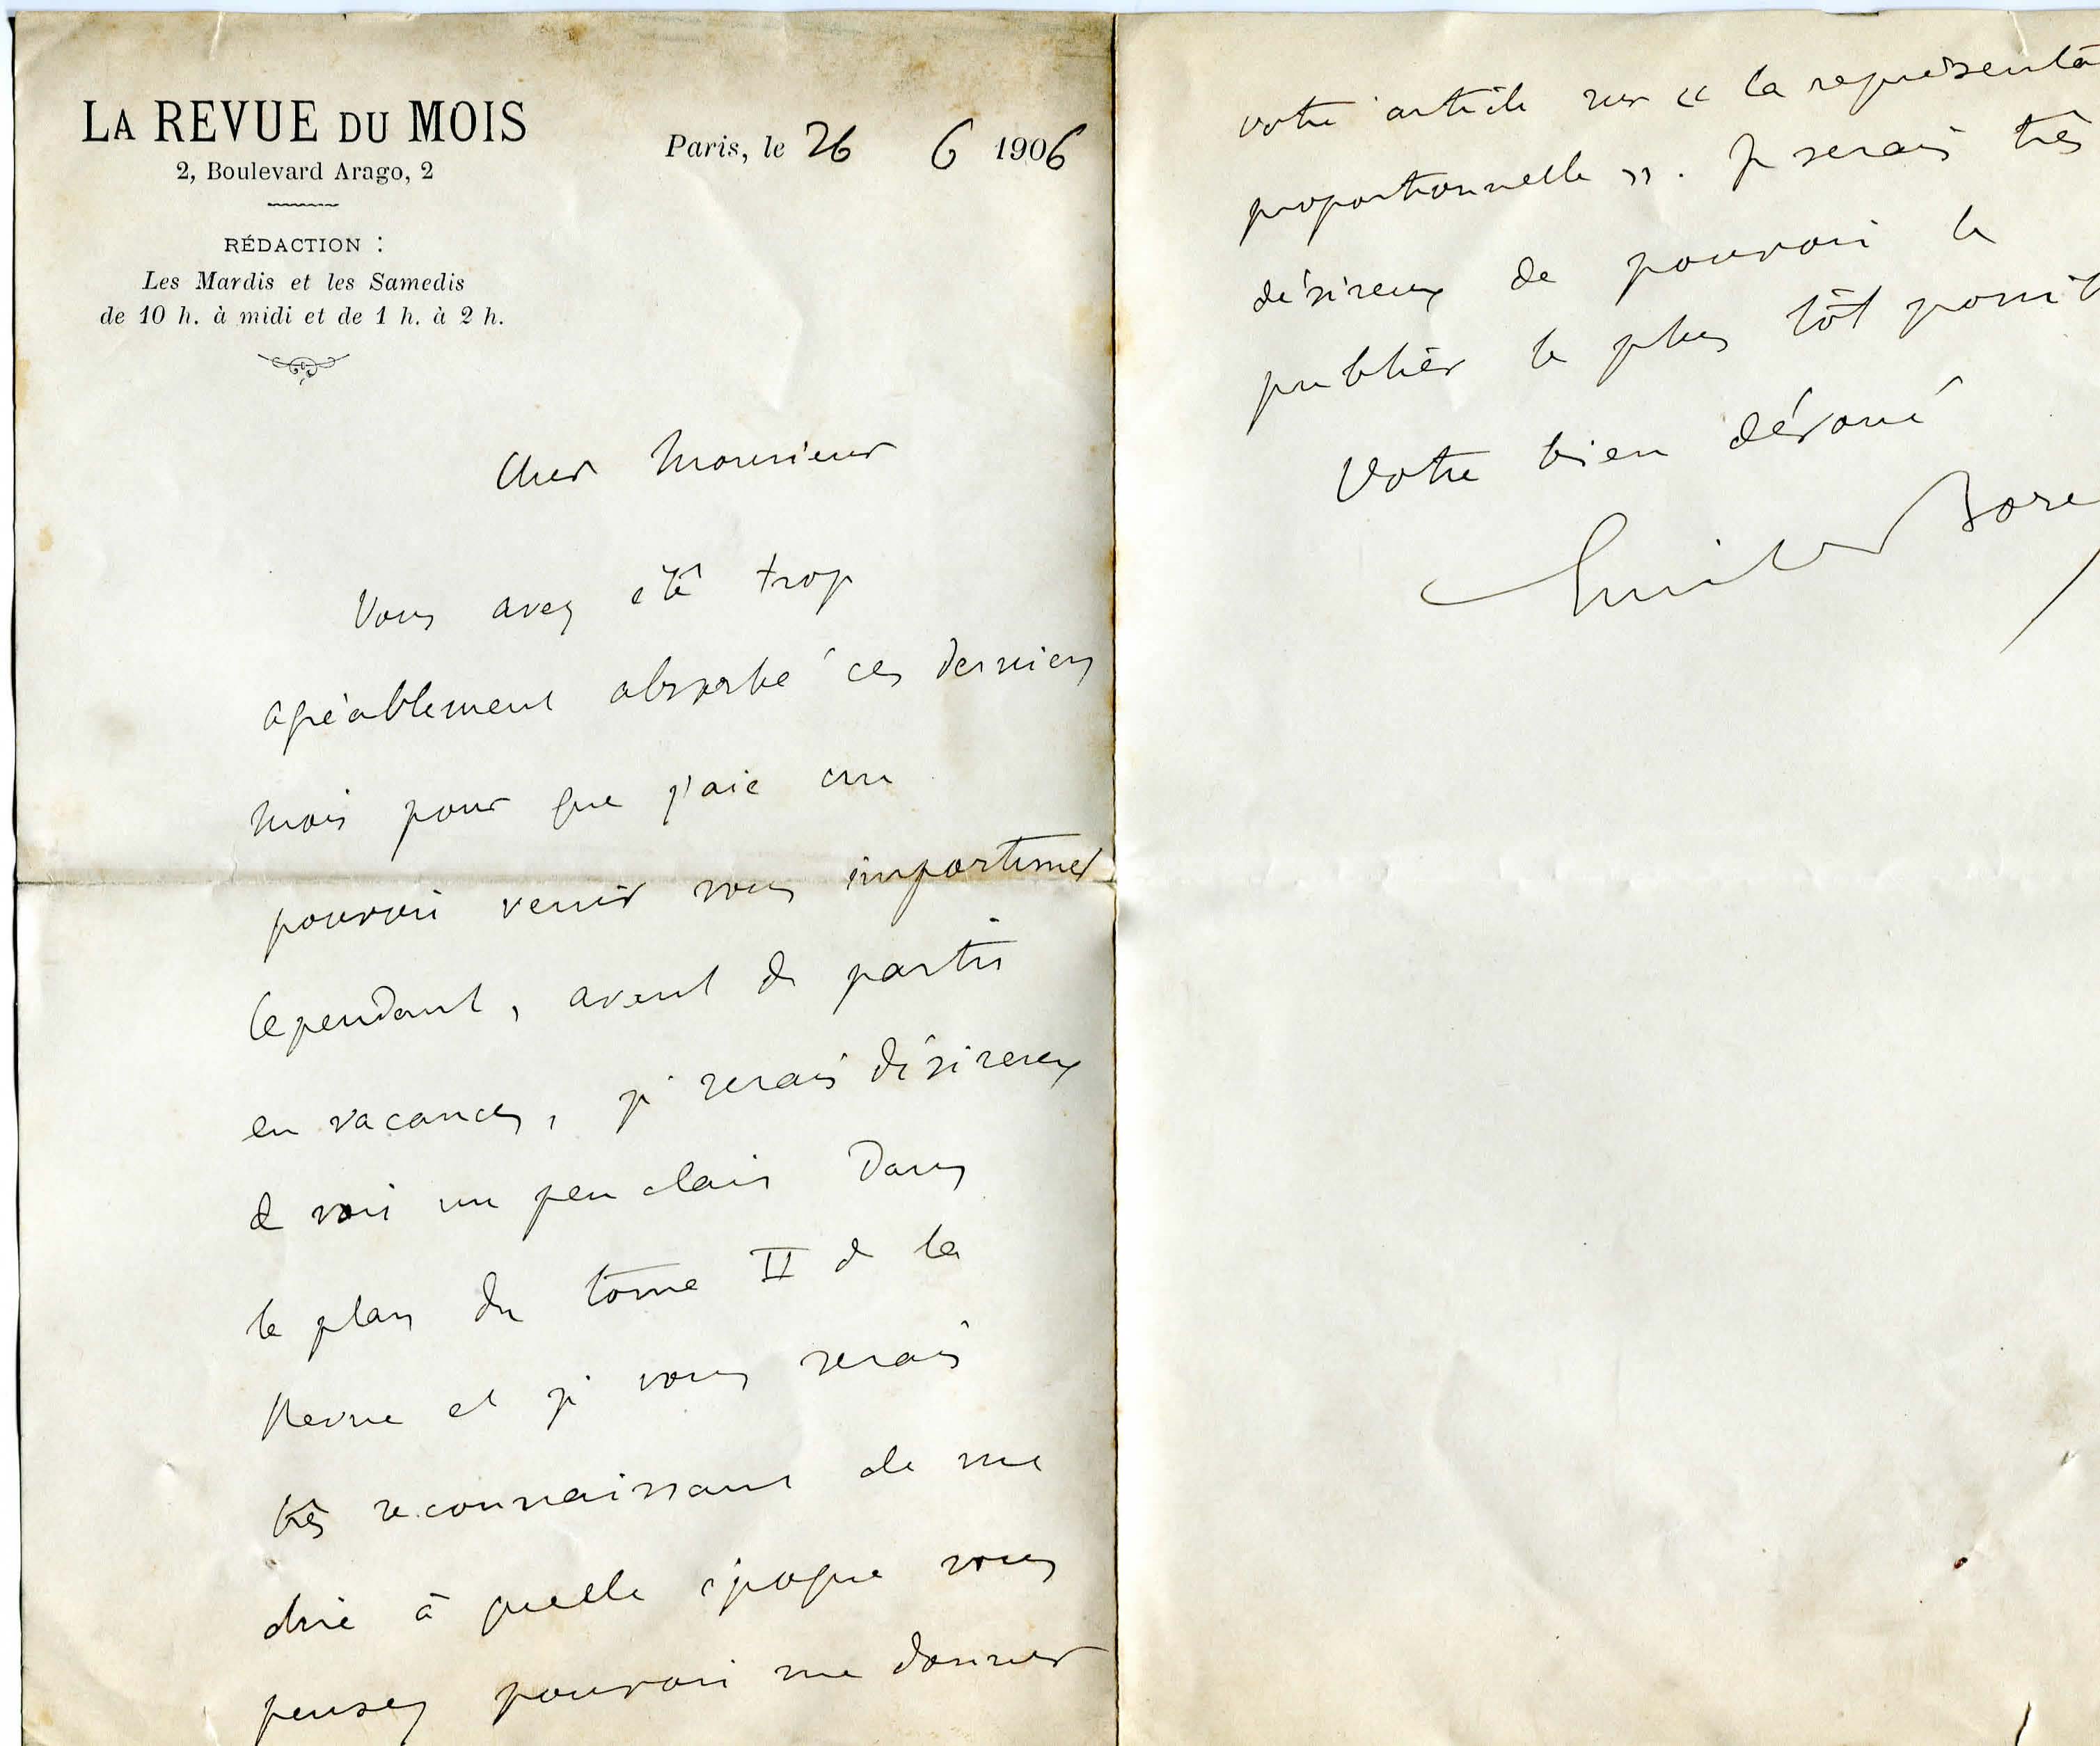 LA REVUE DU MOIS
2, Boulevard Arago, 2
RÉDACTION :
Les Mardis et les Samedis
de 10 h. à midi et de 1 h. à 2 h.
Paris, le 26 6 1906
Cher Monsieur
Vous avez été trop
agréablement absorbé ces derniers
mois pour que j'aie cru
pouvoir venir vous importuner
Cependant, avant de partir
en vacances, je serais désireux
de voir un peu clair dans
le plan du tome II de la
Revue et je vous serais
très reconnaissant de me
dire à quelle époque vous
pensez pouvoir me donner
votre article sur « la représenta
proportionnelle ». Je serais très
désireux de pouvoir le
publier le plus tôt possib
Votre bien dévoué
Emile Bore